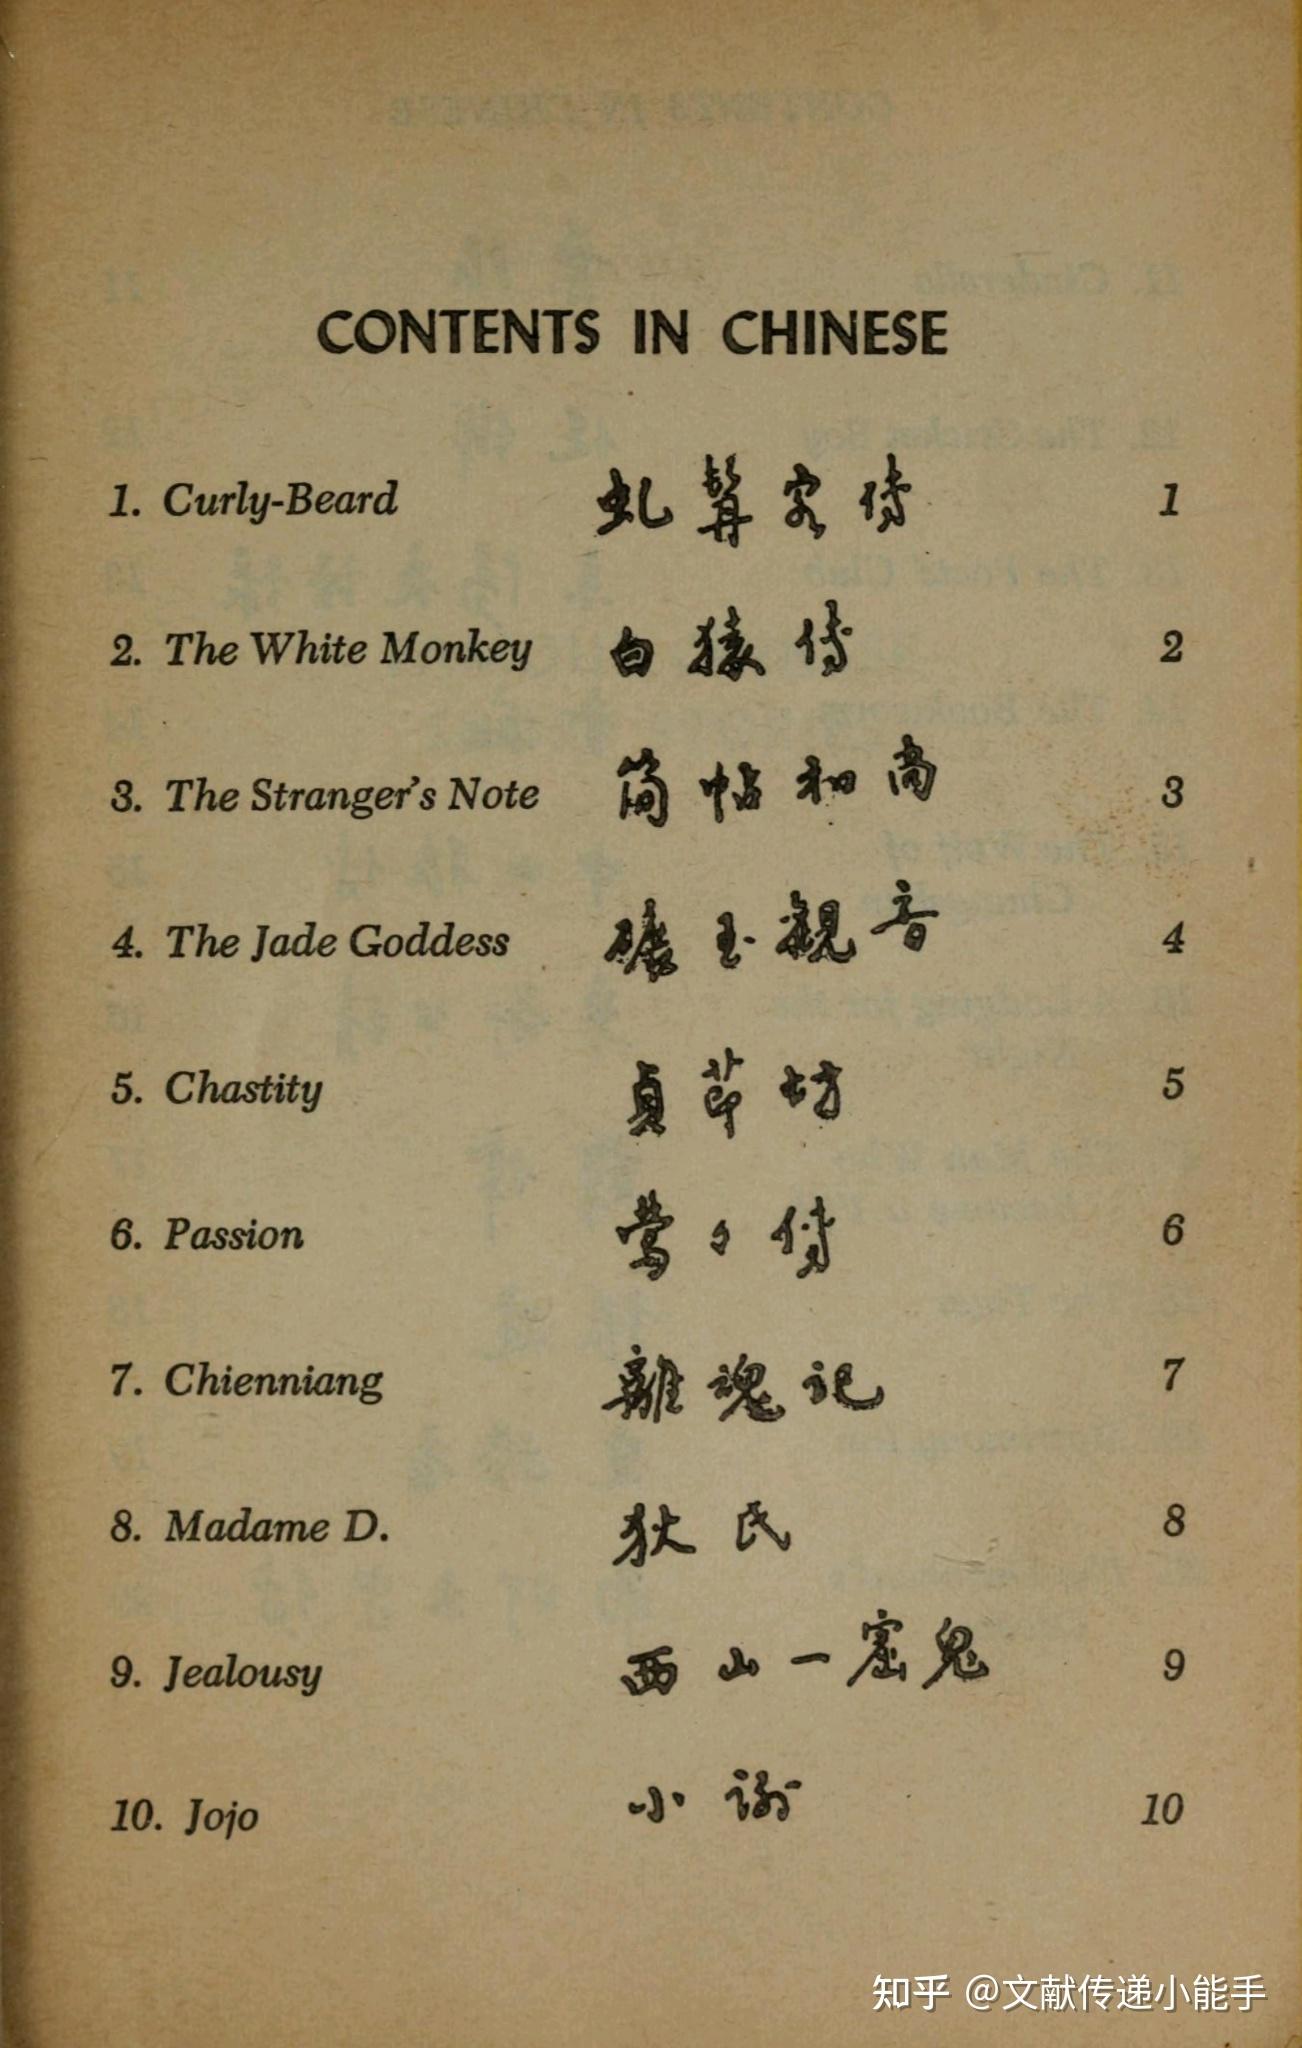 CONTENTS IN CHINESE
1. Curly-Beard 虬髯客传 1
2. The White Monkey 白猿传 2
3. The Stranger's Note 简帖和尚 3
4. The Jade Goddess 碾玉觀音 4
5. Chastity 貞節坊 5
6. Passion 莺々傳 6
7. Chienniang 離魂记 7
8. Madame D. 狄氏 8
9. Jealousy 西山一窟鬼 9
10. Jojo 小谢 10
知乎 @文献传递小能手